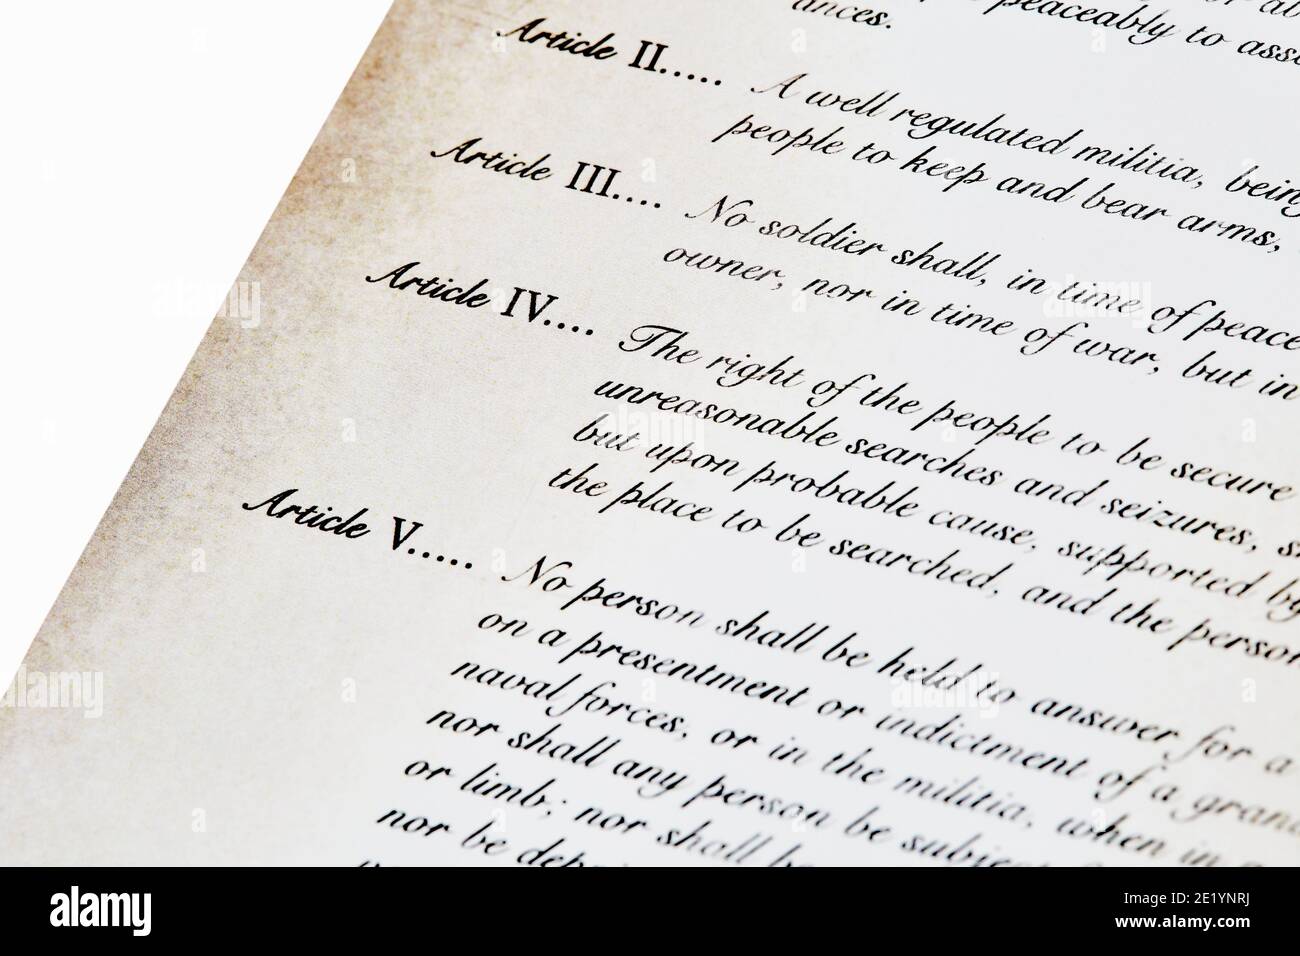 peaceably to
ances.
Article II..... A well regulated militia, being
people to keep and bear arms,
Article III.... No soldier shall, in time of peace
owner, nor in time of war, but in
Article IV.... The right of the people to be secure
unreasonable searches and seizures,
but upon probable cause, supported by
the place to be searched, and the person
Article V..... No person shall be held to answer for a
on a presentment or indictment of a gran
naval forces, or in the militia, when in
nor shall any person be subject
or limb; nor shall be
nor be
alamy
Image ID: 2E1YNRJ
www.alamy.com